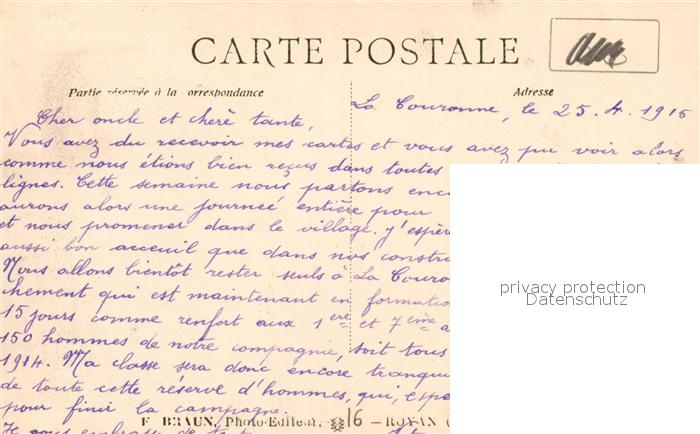 CARTE POSTALE
Partie réservée à la correspondance
Adresse
La Couronne, le 25.4.1915
Cher oncle et chère tante,
Vous avez du recevoir mes cartes et vous avez pu voir alors
comme nous étions bien reçus dans toutes
lignes. Cette semaine nous partons enc
aurons alors une journeé entière pour
et nous promener dans le village. J'espère
aussi bon acceuil que dans nos constru
Nous allons bientôt rester seuls à La Couro
chement qui est maintenant en formatio
15 jours comme renfort aux 1ere et 7ème a
150 hommes de notre compagnie, soit tous
1914. Ma classe sera donc encore tranqui
de toute cette réserve d'hommes, qui, espe
pour finir la campagne.
F. BRAUN, Photo-Editeur, 16 — ROYAN (
Je vous embrasse de
privacy protection
Datenschutz